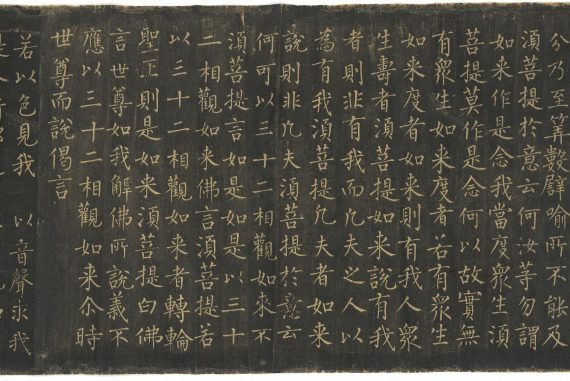 分乃至筭數譬喻所不能及
須菩提於意云何汝等勿謂
如来作是念我當度衆生須
菩提莫作是念何以故實無
有衆生如来度者若有衆生
如来度者如来則有我人衆
生壽者須菩提如来說有我
者則非有我而凡夫之人以
為有我須菩提凡夫者如来
說則非凡夫須菩提於意云
何可以三十二相觀如来不
須菩提言如是如是以三十
二相觀如来佛言須菩提若
以三十二相觀如来者轉輪
聖王則是如来須菩提白佛
言世尊如我解佛所說義不
應以三十二相觀如来尒時
世尊而說偈言
若以色見我 以音聲求我